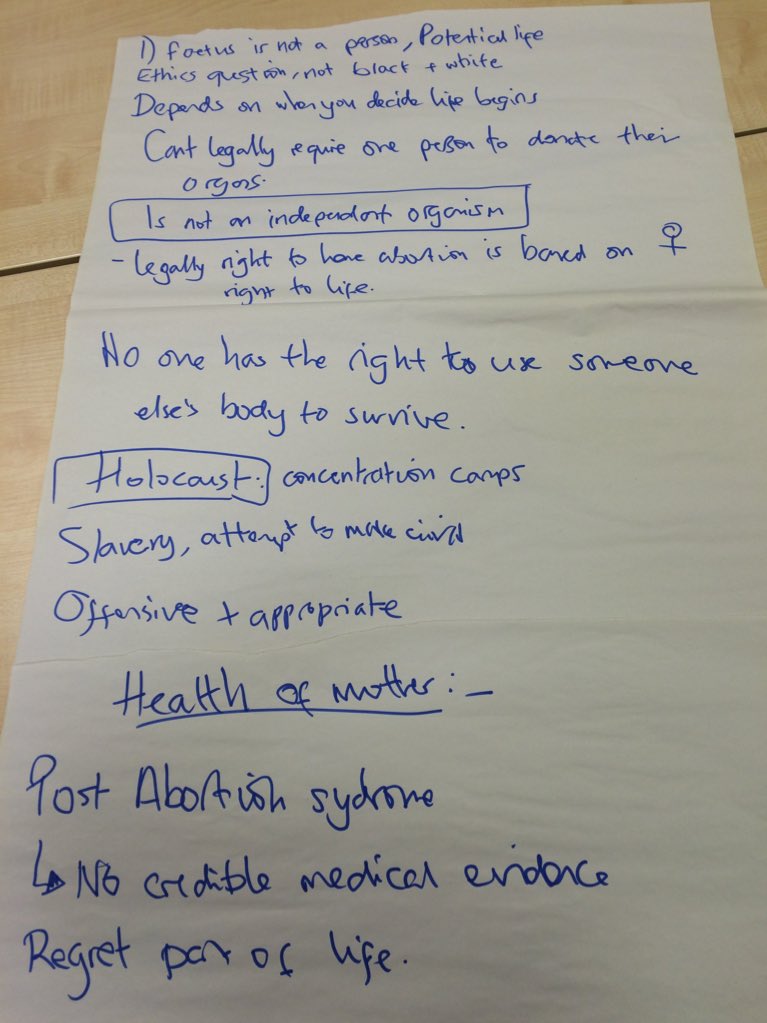 1) Foetus is not a person, Potential life
Ethics question, not black + white
Depends on when you decide life begins
Cant legally require one person to donate their
organs.
Is not an independent organism
- legally right to have abortion is based on ♀
right to life.
No one has the right to use someone
else's body to survive.
Holocaust: concentration camps
Slavery, attempt to make civil
Offensive + appropriate
Health of mother:-
Post Abortion sydrome
↳ No credible medical evidence
Regret part of life.